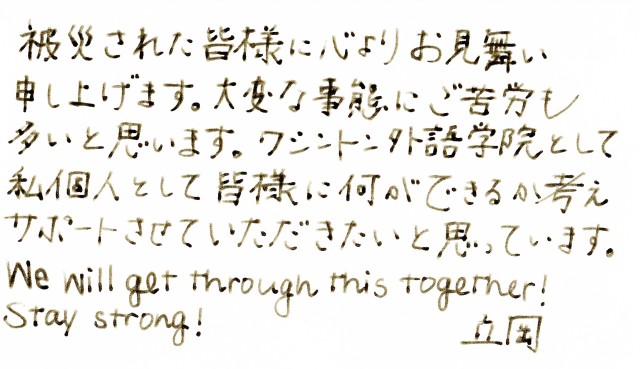 被災された皆様に心よりお見舞い
申し上げます。大変な事態にご苦労も
多いと思います。ワシントン外語学院として
私個人として皆様に何ができるか考え
サポートさせていただきたいと思っています。
We will get through this together!
Stay strong!
立岡